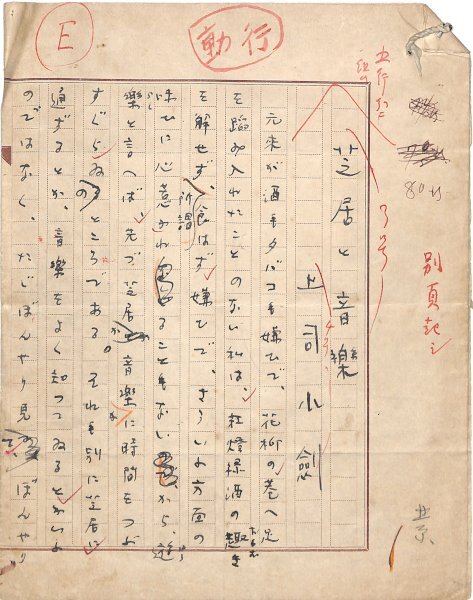 E
行動
別頁起シ
芝居と音樂
上司小劍
元來が酒もタバコも嫌ひで、花柳の巷へ足
を踏み入れたことのない私は、紅燈緑酒の趣き
を解せず、所謂食はず嫌ひで、さういふ方面の
味ひに心惹かれることもないから、遊
樂と言へば、先づ芝居か音樂に時間をつぶ
すぐらゐのところである。それも別に芝居に
通ずるとか、音樂をよく知つてゐるとかいふ
のではなく、たゞぼんやり見て、ぼんやり